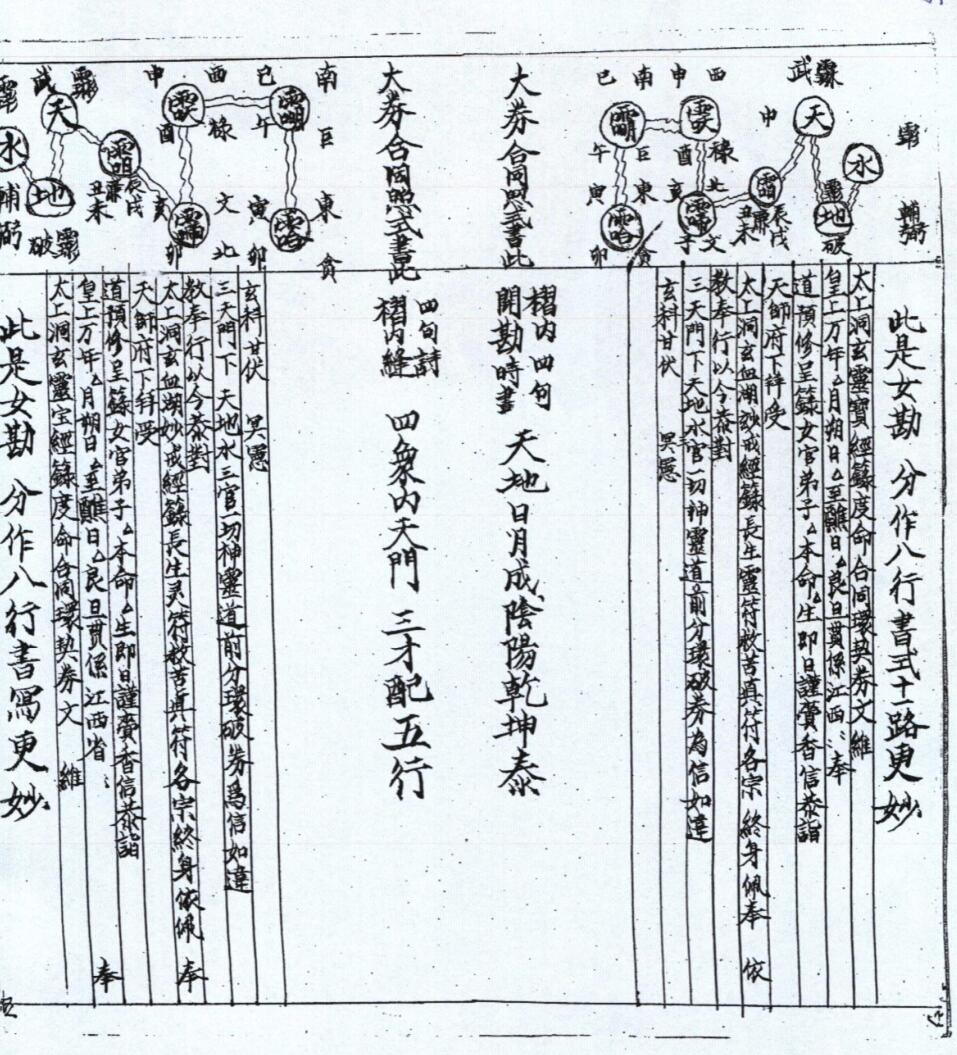 此是女勘 分作八行書式十一路更妙
太上洞玄靈寶經籙度命合同環契券文 維
皇上万年 月朔日 至醮日 良日貫係江西 奉
道預修呈籙女官弟子 本命 生即日謹賫香信恭詣
天師府下拜受
太上洞玄血湖妙戒經籙長生靈符救苦真符各宗 終身佩奉 依
教奉行以今恭對
三天門下天地水官一切神靈道前分環破券為信如違
玄科甘伏 冥憲
武
天
中
水
輔
弼
地
破
雷
辰戌
丑未
廉
西
申
南
巳
禄
酉
巨
午
北
亥
東
寅
文
子
貪
卯
大券合同照式書此
褶内四句
開勘時書
天地日月成陰陽乾坤泰
大券合同照式書此
四句詩
褶内縫
四象内天門 三才配五行
南
巳
西
申
巨
午
禄
酉
東
寅
文
亥
貪
卯
北
卯
辰戌
丑未
廉
武
天
水
輔
弼
地
破
玄科甘伏 冥憲
三天門下 天地水三官一切神靈道前分環破券為信如違
教奉行以今恭對
太上洞玄血湖妙戒經籙長生灵符救苦真符各宗終身依佩 奉
天師府下拜受
道預修呈籙女官弟子 本命 生即日謹賫香信恭詣
皇上万年 月朔日 至醮日 良日貫係江西省 奉
太上洞玄靈宝經籙度命合同環契券文 維
此是女勘 分作八行書寫更妙